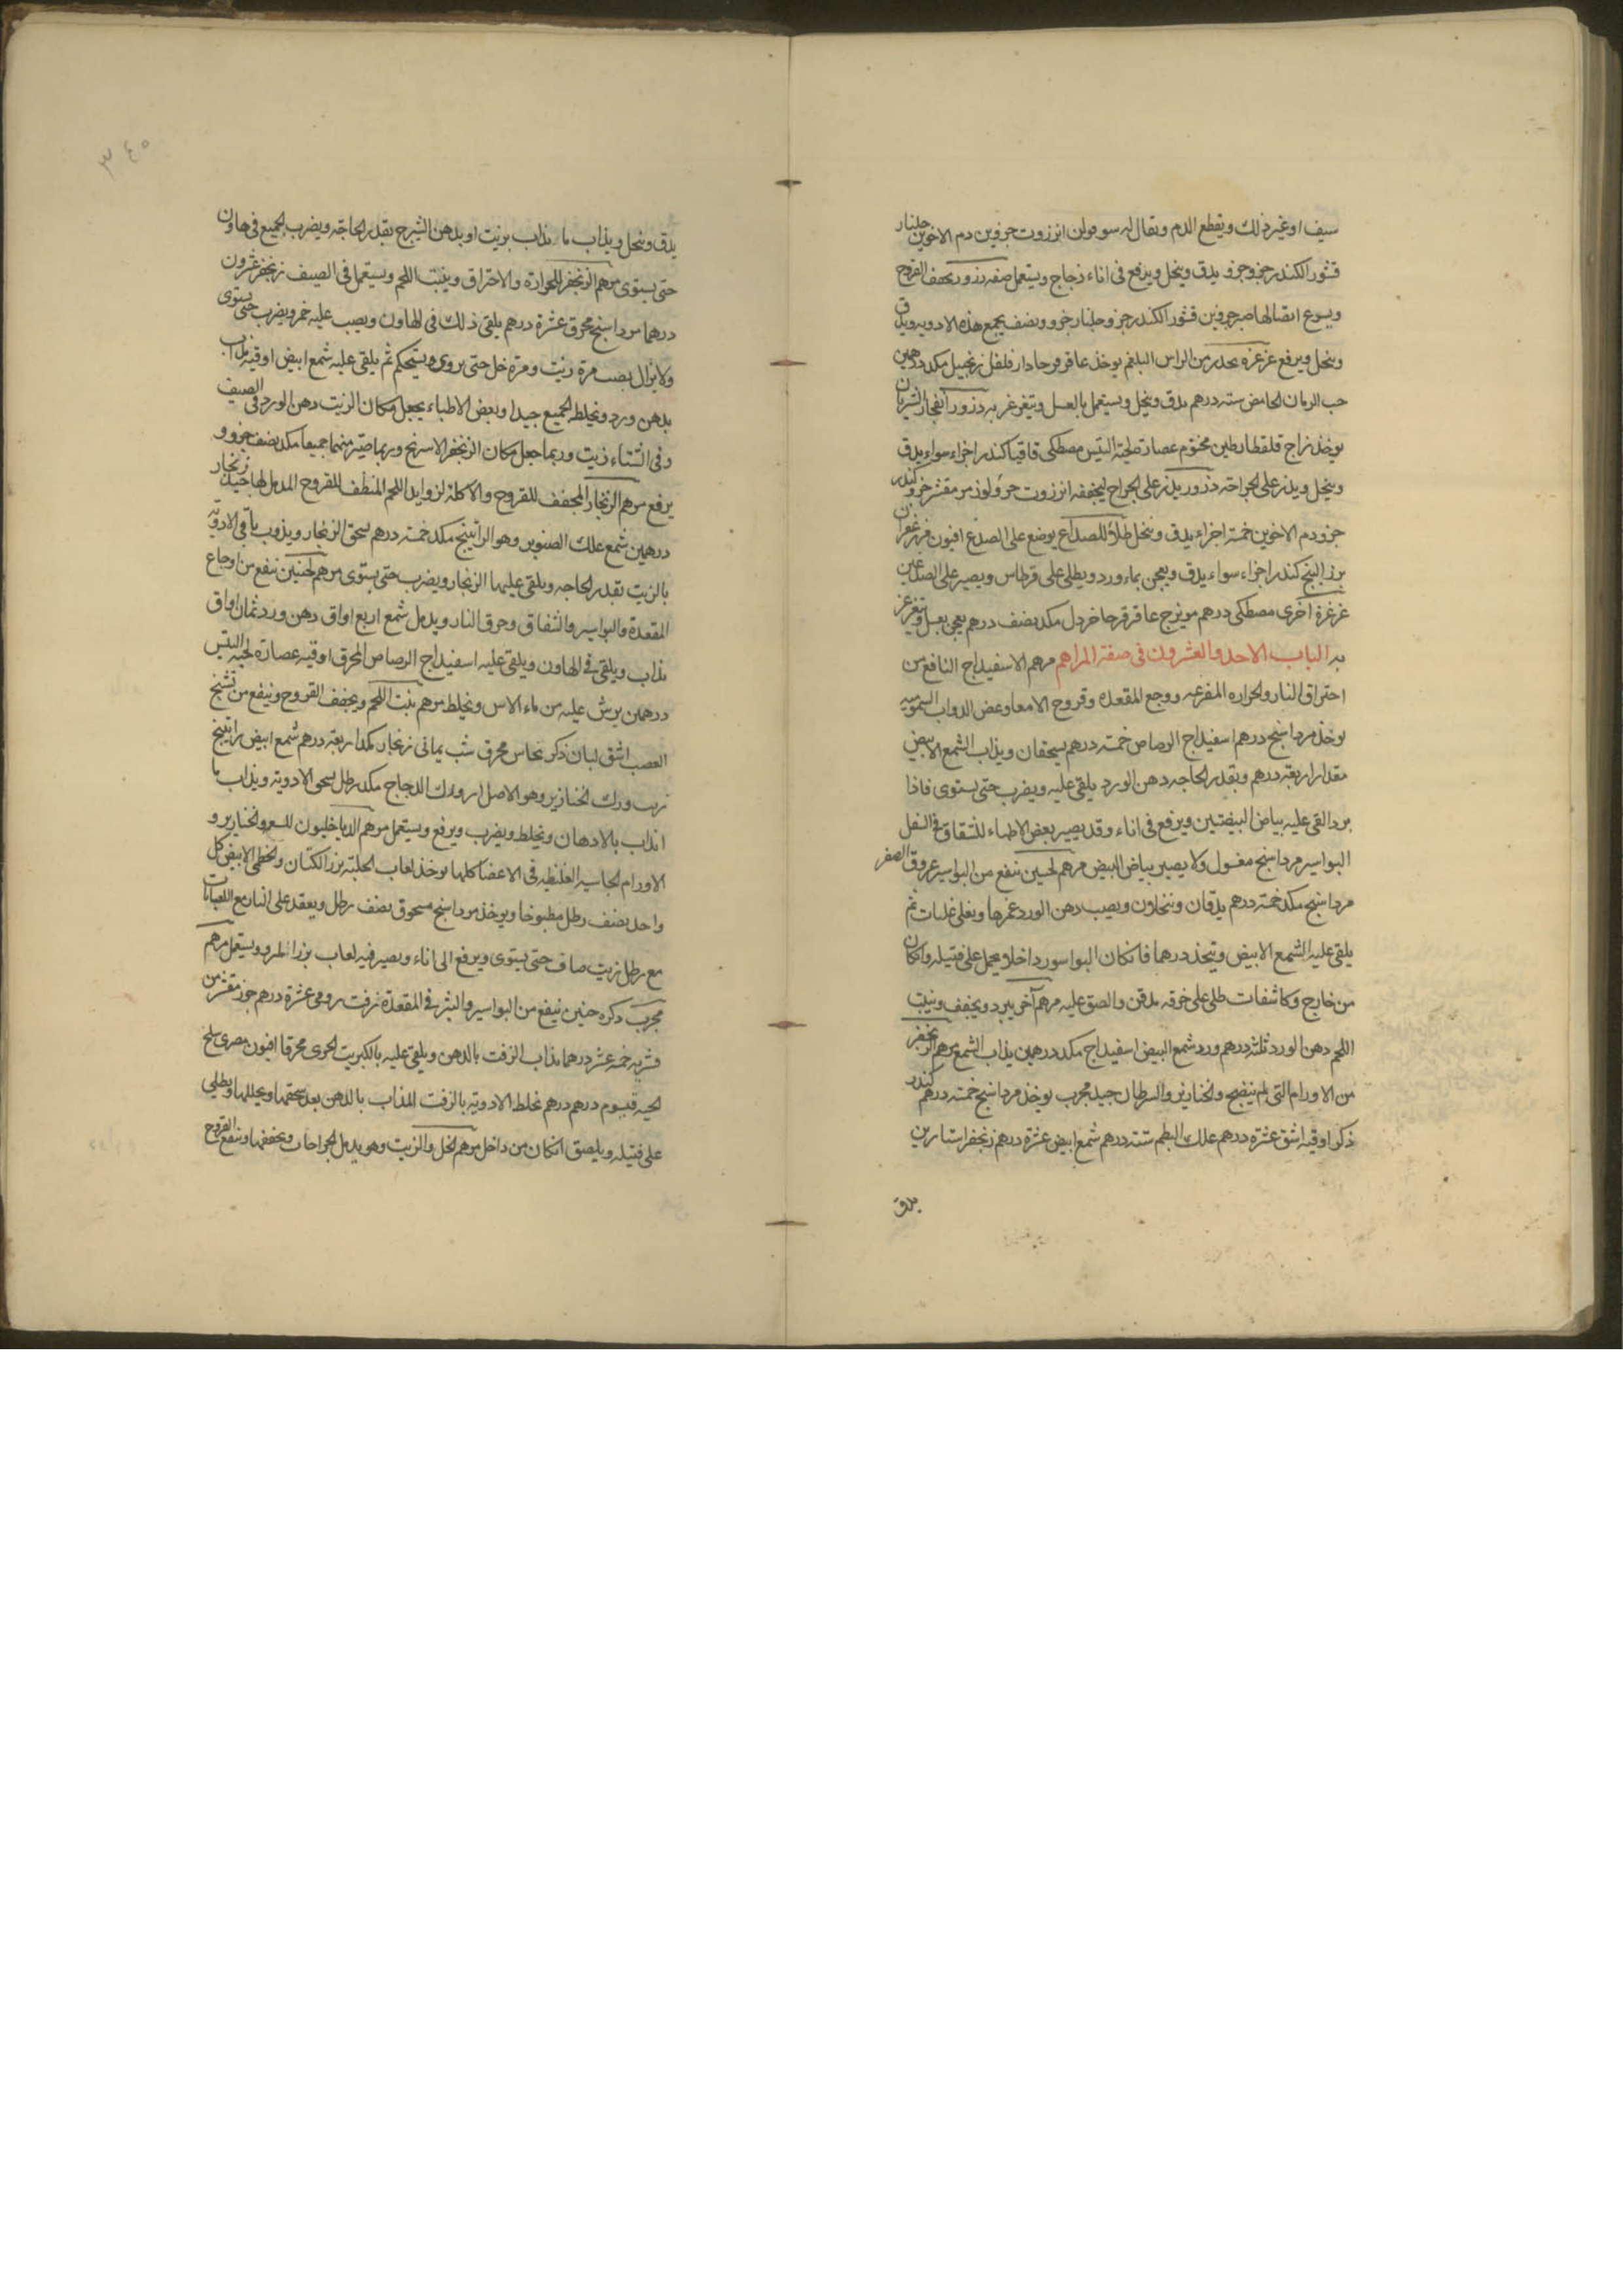 سيف او غير ذلك ويقطع الدم ويقال له انزروت جزوين دم الاخوين جلنار
قشور الكندر جزو جزو يدق وينخل ويرفع فى اناء زجاج ويستعمل صفه ذرور يجفف القروح
ويسرع اتصالها صبر جزوين قشور الكندر جزو جلنار جزو ونصف يجمع هذه الادويه ويدق
وينخل ويرفع غرغره يحدر من الراس البلغم يوخذ عاقرقرحا دارفلفل زنجبيل مكد درهمين
حب الرمان الحامض سته درهم يدق وينخل ويستعمل بالعسل ويتغرغر به ذرور انفجار الشريان
يوخذ زاج قلقطار طين مختوم عصارة لحية التيس مصطكى قاقيا كندر اجزاء سواء يدق
وينخل ويذر على الجراحة ذرور يذر على الجراح ليجففه انزروت جزو لوز مر مقشر جزو كندر
جزو دم الاخوين خمسة اجزاء يدق وينخل طلاء للصداع يوضع على الصدغ افيون زعفران
بزر البنج كندر اجزاء سواء يدق ويعجن بماء ورد ويطلى على قرطاس ويصير على الصدغين
غرغرة اخرى مصطكى درهم مويزج عاقرقرحا خردل مكد نصف درهم يعجن بعسل ويتغرغر
به الباب الاحد والعشرون فى صفة المراهم مرهم الاسفيداج النافع من
احتراق النار والحراره المفرعه ووجع المقعدة وقروح الامعا وعض الدواب السموميه
يوخذ مرداسنج درهم اسفيداج الرصاص خمسة درهم يسحقان ويذاب الشمع الابيض
مقدار اربعة درهم وبقدر الحاجه دهن الورد يلقى عليه ويضرب حتى يستوى فاذا
برد القى عليه بياض البيضتين ويرفع فى اناء وقد يصير بعض الاطباء للشقاق فى السفل
البواسير مرداسنج مغسول ولا يصير بياض البيض مرهم لحنين ينفع من البواسير عروق الصفر
مرداسنج مكد خمسة درهم يدقان وينخلان ويصب دهن الورد غمرها ويغلى غليات ثم
يلقى عليه الشمع الابيض ويتخذ درهما فان كان البواسور داخلا يحمل على فتيله وان كان
من خارج وكا شفات طلى على خرقه والصق عليه مرهم آخر يبرد ويجفف وينبت
اللحم دهن الورد ثلثة درهم ورد شمع ابيض اسفيداج مكد درهمين يذاب الشمع مرهم الزنجفر
من الاورام التى لم ينضج والخنازير والسرطان جيد مجرب يوخذ مرداسنج خمسة درهم كندر
ذكر اوقية اشق عشرة درهم علك البطم ستة درهم شمع ابيض عشرة درهم زنجفر استارين
يدق
٣٤٠
يدق وينخل ويذاب ما يذاب بزيت او بدهن الشيرج بقدر الحاجة ويضرب الجميع فى هاون
حتى يستوى مرهم الزنجفر للحرارة والاحتراق وينبت اللحم ويستعمل فى الصيف زنجفر عشرون
درهما مرداسنج محرق عشرة درهم يلقى ذلك فى الهاون ويصب عليه خمر ويضرب حتى يستوى
ولا يزال يصب مرة زيت ومرة خل حتى يروى ويستحكم ثم يلقى عليه شمع ابيض اوقية مذاب
بدهن ورد ويخلط الجميع جيدا وبعض الاطباء يجعل مكان الزيت دهن الورد فى الصيف
وفى الشتاء زيت وربما جعل مكان الزنجفر الاسرنج وربما صير منهما جميعا مكد نصف جزو و
يرفع مرهم الزنجار المجفف للقروح والاكلة لزوايد اللحم المنظف للقروح المدمل لها جيد زنجار
درهمين شمع علك الصنوبر وهو الراتينج مكد خمسة درهم يسحق الزنجار ويذوب باقى الادوية
بالزيت بقدر الحاجه ويلقى عليهما الزنجار ويضرب حتى يستوى مرهم لحنين ينفع من اوجاع
المقعدة والبواسير والشقاق وحرق النار ويدمل شمع اربع اواق دهن ورد ثمان اواق
يذاب ويلقى فى الهاون ويلقى عليه اسفيداج الرصاص المحرق اوقيه عصارة لحية التيس
درهمين يرش عليه من ماء الاس ويخلط مرهم ينبت اللحم ويجفف القروح وينفع من تشنج
العصب اشق لبان ذكر نحاس محرق شب يمانى زنجار مكد اربعة درهم شمع ابيض راتينج
زيت ودك الخنازير وهو الاصل او ودك الدجاج مكد رطل يسحق الادوية ويذاب ما
انذاب بالادهان ويخلط ويضرب ويرفع ويستعمل مرهم الدياخليون والخنازير و
الاورام الجاسيه الغليظه فى الاعضا كلها يوخذ لعاب الحلبة بزر الكتان والخطمى الابيض كل
واحد نصف رطل مطبوخا ويوخذ مرداسنج مسحوق نصف رطل ويعقد على النار مع اللعابات
مع رطل زيت صاف حتى يستوى ويرفع الى اناء ويصير فيه لعاب بزر المرو ويستعمل مرهم
مجرب ذكره حنين ينفع من البواسير والبثر فى المقعدة زفت رومى عشرة درهم جوز مقشر من
قشريه خمسة عشر درهما يذاب الزفت بالدهن ويلقى عليه بالكبريت محرقا افيون مصرى سلخ
الحيه قيسوم درهم درهم تخلط الادوية بالزفت المذاب بالدهن بعد سحقها ويطلى
على فتيله ويلصق ان كان من داخل مرهم الخل والزيت وهو يدمل الجراحات ويجففها وينفع القروح